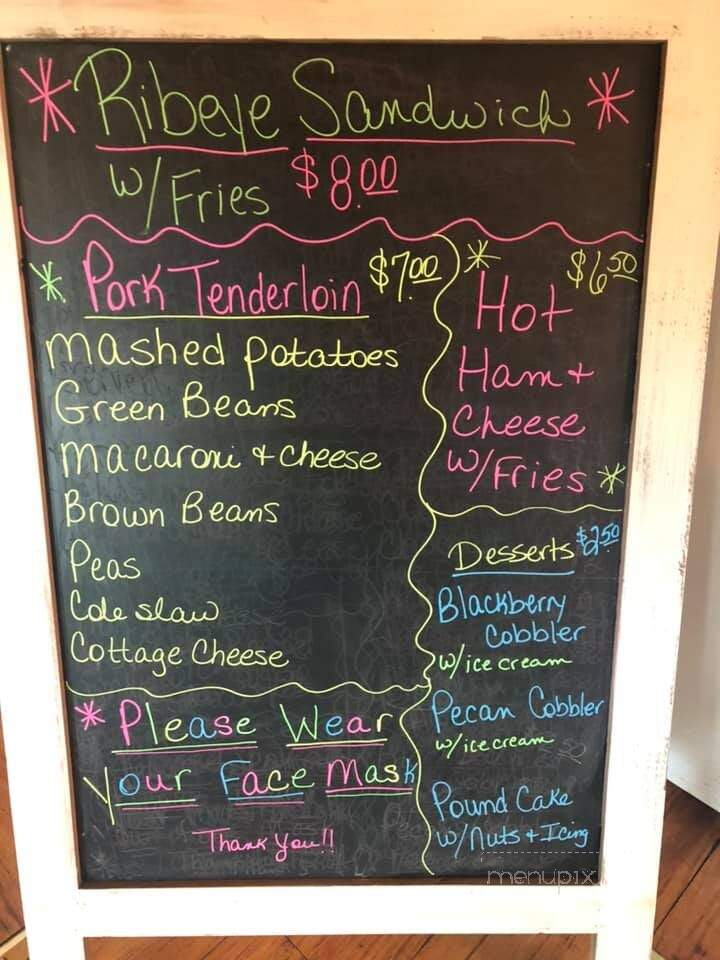 * Ribeye Sandwich *
w/Fries $8.00
* Pork Tenderloin $7.00
mashed potatoes
Green Beans
macaroni + cheese
Brown Beans
Peas
Cole slaw
Cottage Cheese
* Please Wear
Your Face Mask
Thank You!!
* $6.50
Hot
Ham +
Cheese
w/Fries *
Desserts $2.50
Blackberry
Cobbler
w/ice cream
Pecan Cobbler
w/ice cream
Pound Cake
w/Nuts + Icing
menupix